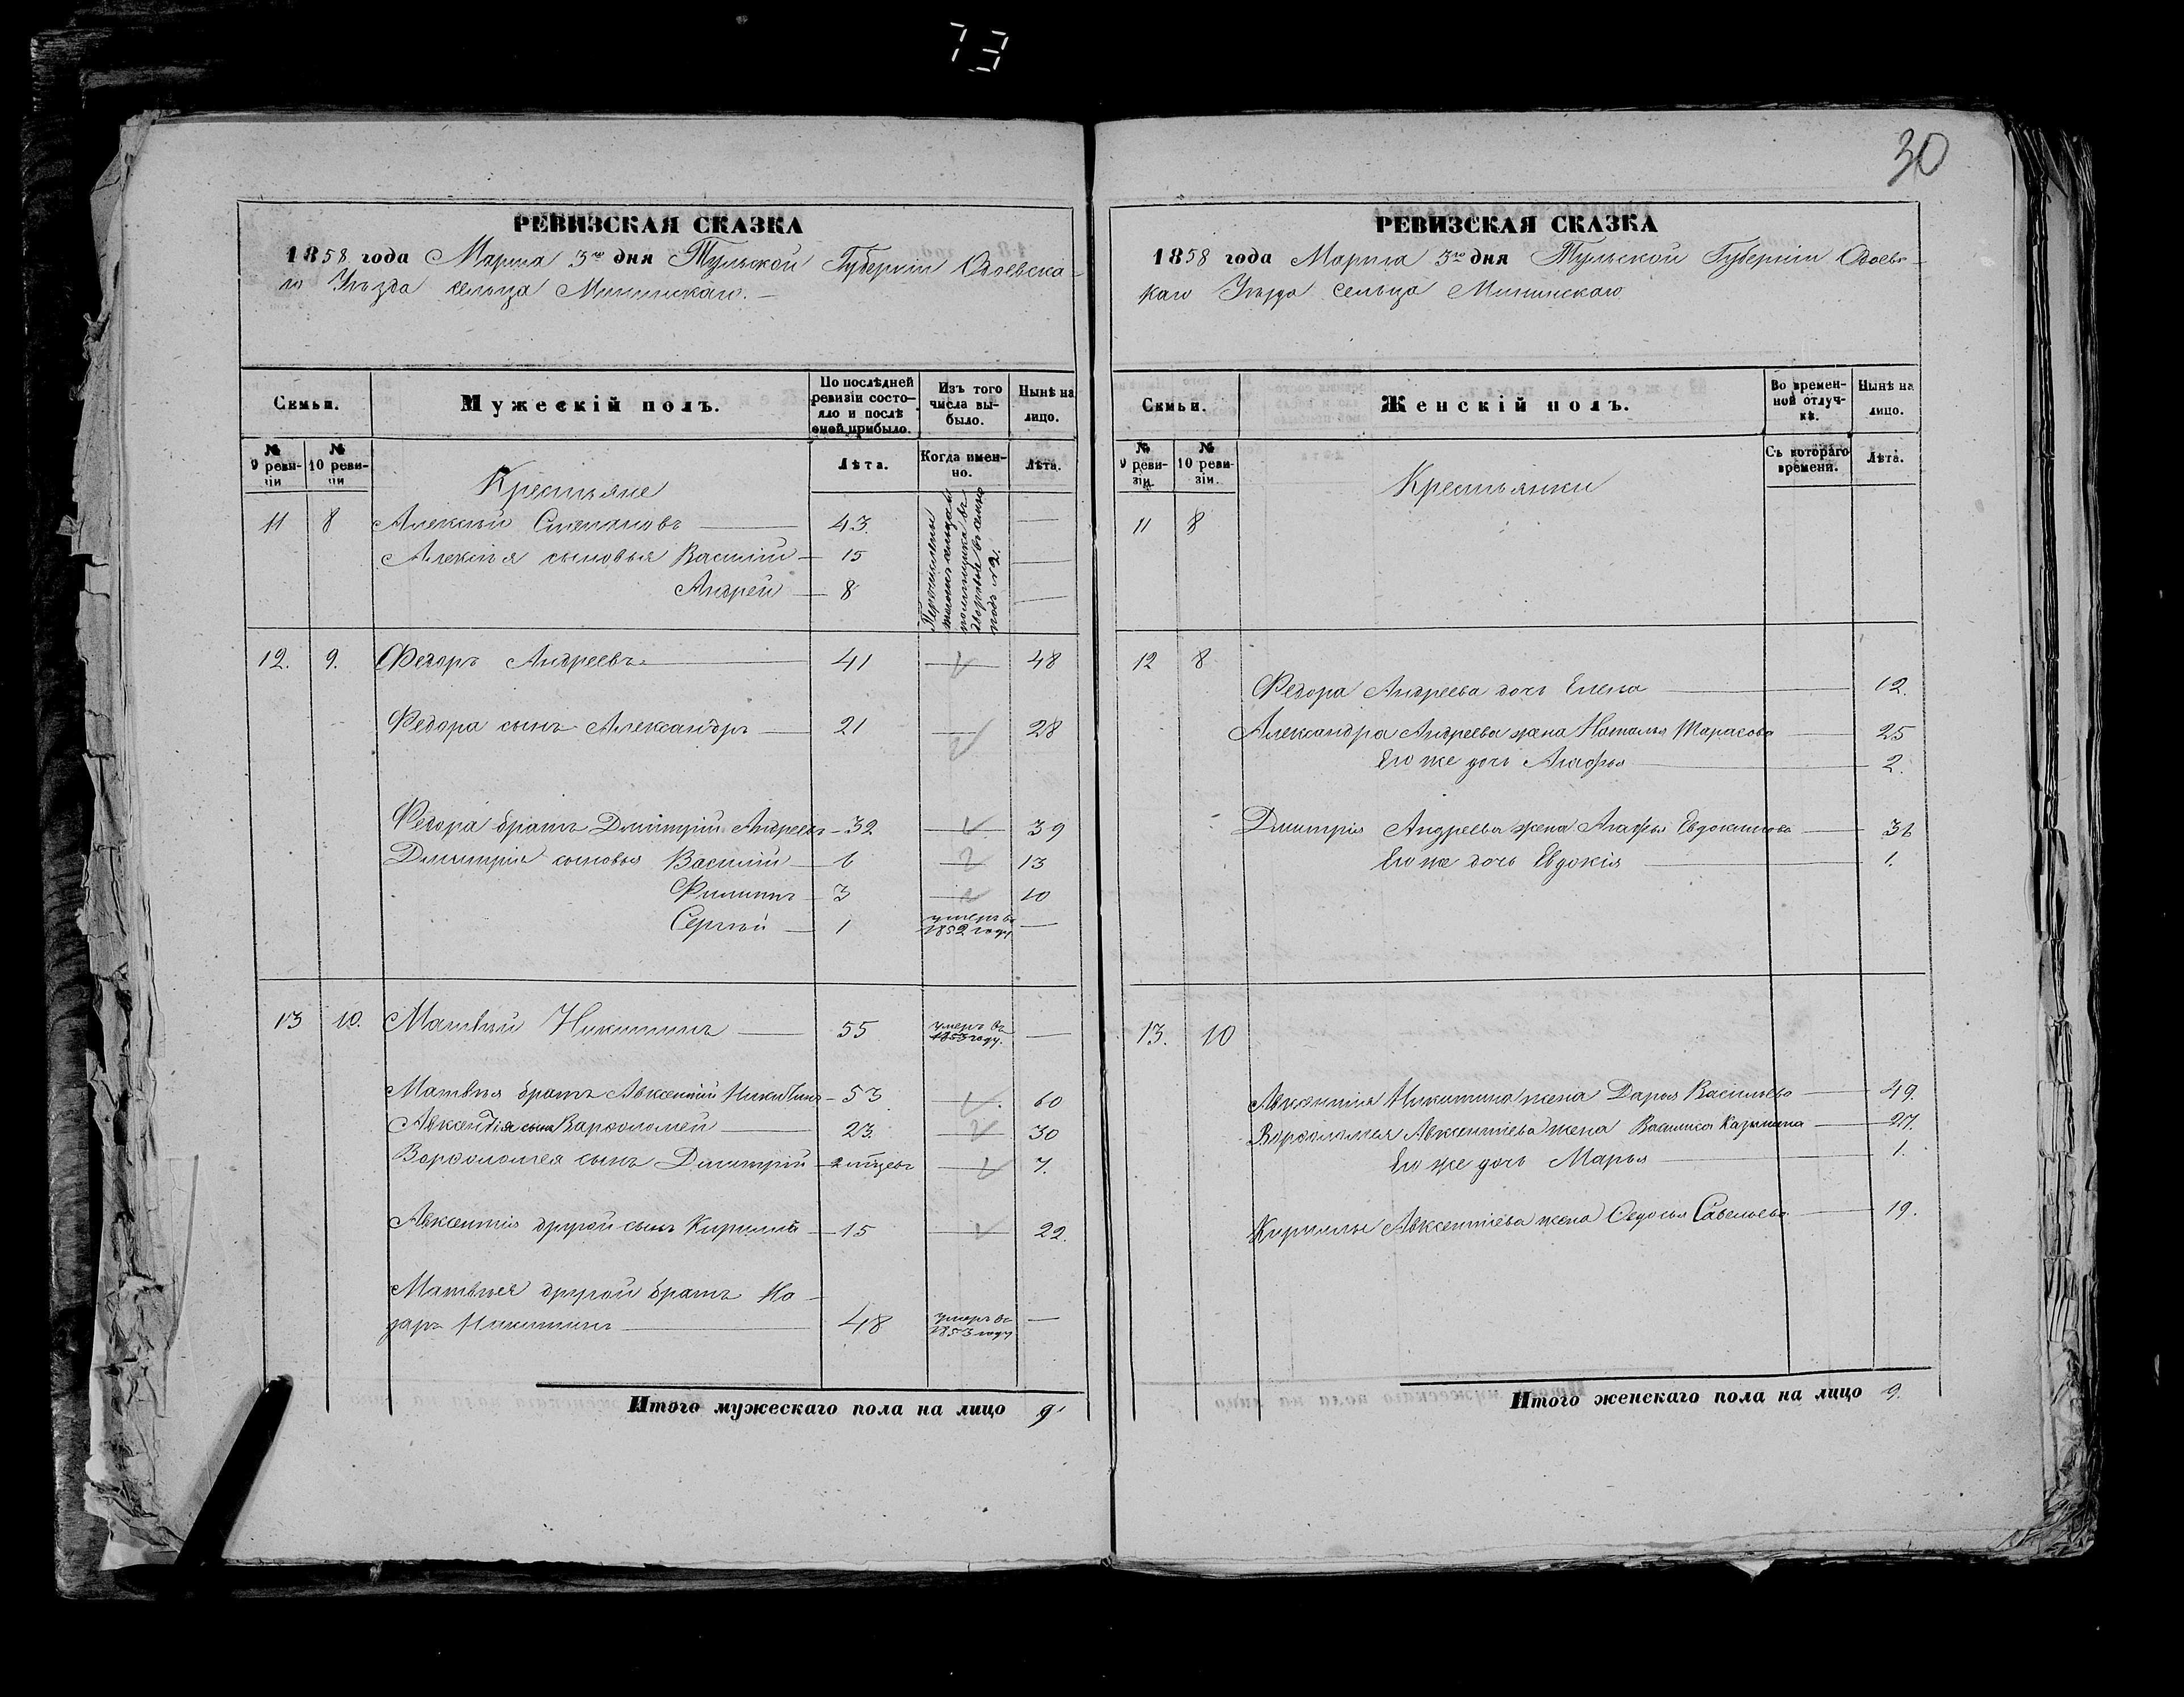 73
30
РЕВИЗСКАЯ СКАЗКА
1858 года Марта 3го дня Тульской Губерніи Одоевска-
го Уѣзда сельца Мининскаго.
Семьи.
Мужескій полъ.
По послѣдней ревизіи состояло и послѣ оной прибыло.
Изъ того числа выбыло.
Нынѣ на лицо.
№ 9 ревизіи
№ 10 ревизіи
Лѣта.
Когда именно.
Лѣта.
Крестьяне
11 8 Алексѣй Степановъ 43.
Алексѣя сыновья Василій 15
Андрей 8
Перечислены
дворовые въ семью
подъ №2.
12. 9. Федоръ Андреевъ 41 48
Федора сынъ Александръ 21 28
Федора братъ Дмитрій Андреевъ 32 39
Дмитрія сыновья Василій 6 13
Филиппъ 3 10
Сергѣй 1 умеръ въ 1852 году
13 10. Матвѣй Никитинъ 55 умеръ въ 1853 году.
Матвѣя братъ Авксентій Никитинъ 53 60
Авксентія сынъ Варфоломей 23. 30
Варфоломея сынъ Дмитрій 7.
Авксентія другой сынъ Кирилла 15 22.
Матвѣея другой братъ На-
заръ Никитинъ 48 умеръ въ 1853 году
Итого мужескаго пола на лицо 9
РЕВИЗСКАЯ СКАЗКА
1858 года Марта 3го дня Тульской Губерніи Одоевс-
каго Уѣзда сельца Мининскаго
Семьи.
Женскій полъ.
Во временной отлучкѣ.
Нынѣ на лицо.
№ 9 ревизіи.
№ 10 ревизіи.
Съ котораго времени.
Лѣта.
Крестьянки
11 8
12 8
Федора Андреева дочь Елена 12.
Александра Андреева жена Наталья Тарасова 25
Его же дочь Агафья 2.
Дмитрія Андреева жена Агафья Евдокимова 36
Его же дочь Евдокія 1.
13. 10
Авксентія Никитина жена Дарья Васильева 49.
Варфоломея Авксентіева жена Василиса Казьмина 27.
Его же дочь Марья 1.
Кириллы Авксентіева жена Федосья Савельева 19.
Итого женскаго пола на лицо 9.